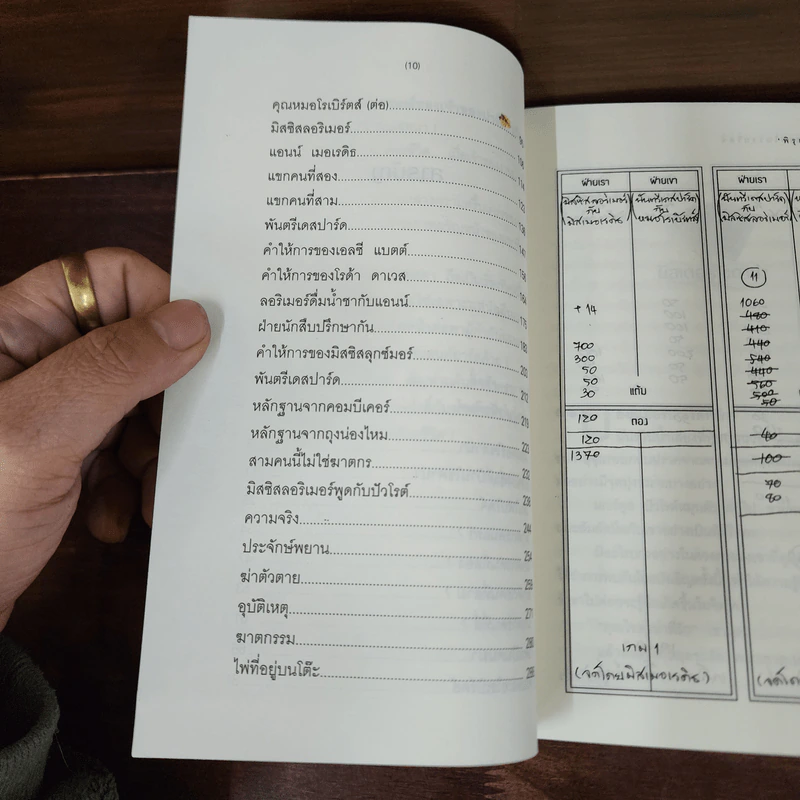 (10)
คุณหมอโรเบิร์ตส์ (ต่อ)
มิสซิสลอริเมอร์
แอนน์ เมอเรดิธ
แขกคนที่สอง
แขกคนที่สาม
พันตรีเดสปาร์ด
คำให้การของเอลซี แบตต์
คำให้การของโรด้า ดาเวส
ลอริเมอร์ดื่มน้ำชากับแอนน์
ฝ่ายนักสืบปรึกษากัน
คำให้การของมิสซิสลุกซ์มอร์
พันตรีเดสปาร์ด
หลักฐานจากคอมบีเคอร์
หลักฐานจากถุงน่องไหม
สามคนนี้ไม่ใช่ฆาตกร 232
มิสซิสลอริเมอร์พูดกับปัวโรต์
ความจริง 244
ประจักษ์พยาน 254
ฆ่าตัวตาย
อุบัติเหตุ
ฆาตกรรม
ไพ่ที่อยู่บนโต๊ะ
ฝ่ายเรา ฝ่ายเขา
มิสซิสลอริเมอร์ กับ มิสเมอเรดิธ
พันตรีเดสปาร์ด กับ หมอโรเบิร์ตส์
+ 14
700
300
50
50
30 แต้ม
120 กอง
120
1370
เกม 1
(จดโดยมิสเมอเรดิธ)
ฝ่ายเรา
พันตรีเดสปาร์ด กับ มิสซิสลอริเมอร์
11
1060
480
410
440
540
440
560
500
50
40
100
70
80
(จดโดย